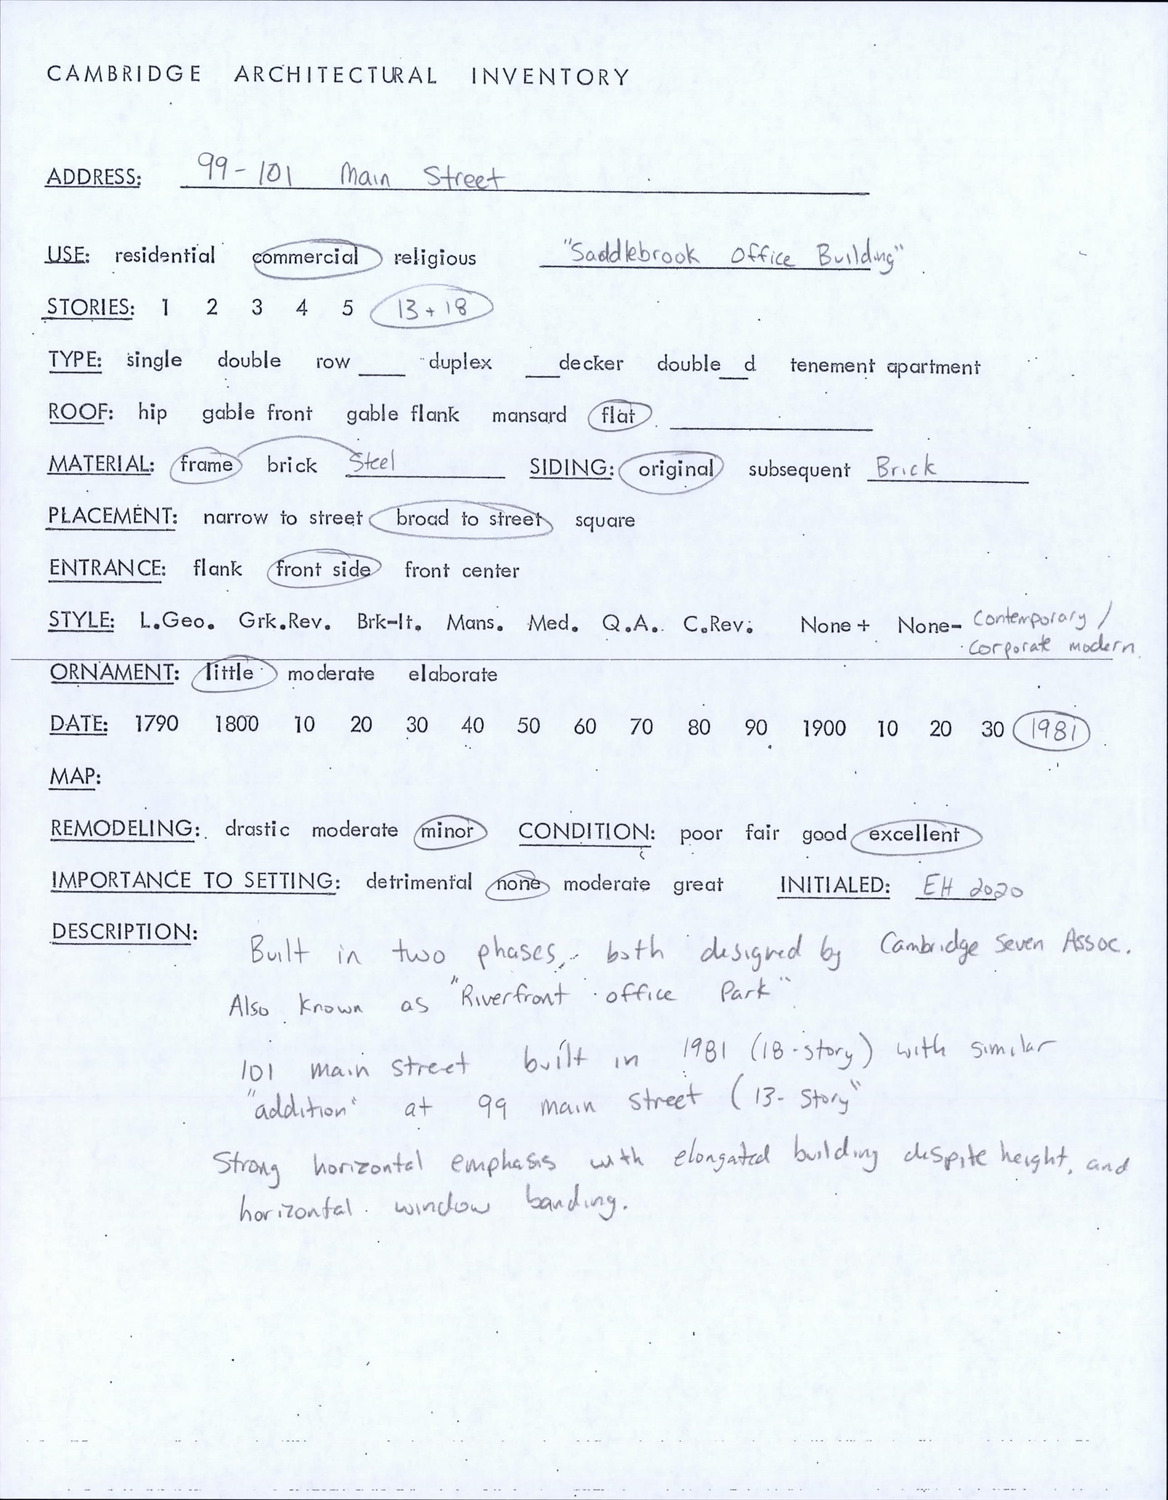 CAMBRIDGE ARCHITECTURAL INVENTORY
ADDRESS: 99-101 Main Street
USE: residential commercial religious "Saddlebrook Office Building"
STORIES: 1 2 3 4 5 13 + 18
TYPE: single double row ___ duplex ___decker double__d tenement apartment
ROOF: hip gable front gable flank mansard flat
MATERIAL: frame brick Steel SIDING: original subsequent Brick
PLACEMENT: narrow to street broad to street square
ENTRANCE: flank front side front center
STYLE: L.Geo. Grk.Rev. Brk-It. Mans. Med. Q.A. C.Rev. None + None- Contemporary /
Corporate modern
ORNAMENT: little moderate elaborate
DATE: 1790 1800 10 20 30 40 50 60 70 80 90 1900 10 20 30 1981
MAP:
REMODELING: drastic moderate minor CONDITION: poor fair good excellent
IMPORTANCE TO SETTING: detrimental none moderate great INITIALED: EH 2020
DESCRIPTION:
Built in two phases, both designed by Cambridge Seven Assoc.
Also known as "Riverfront office Park"
101 main street built in 1981 (18-story) with similar
"addition" at 99 main street (13-Story"
Strong horizontal emphasis with elongated building despite height, and
horizontal window banding.